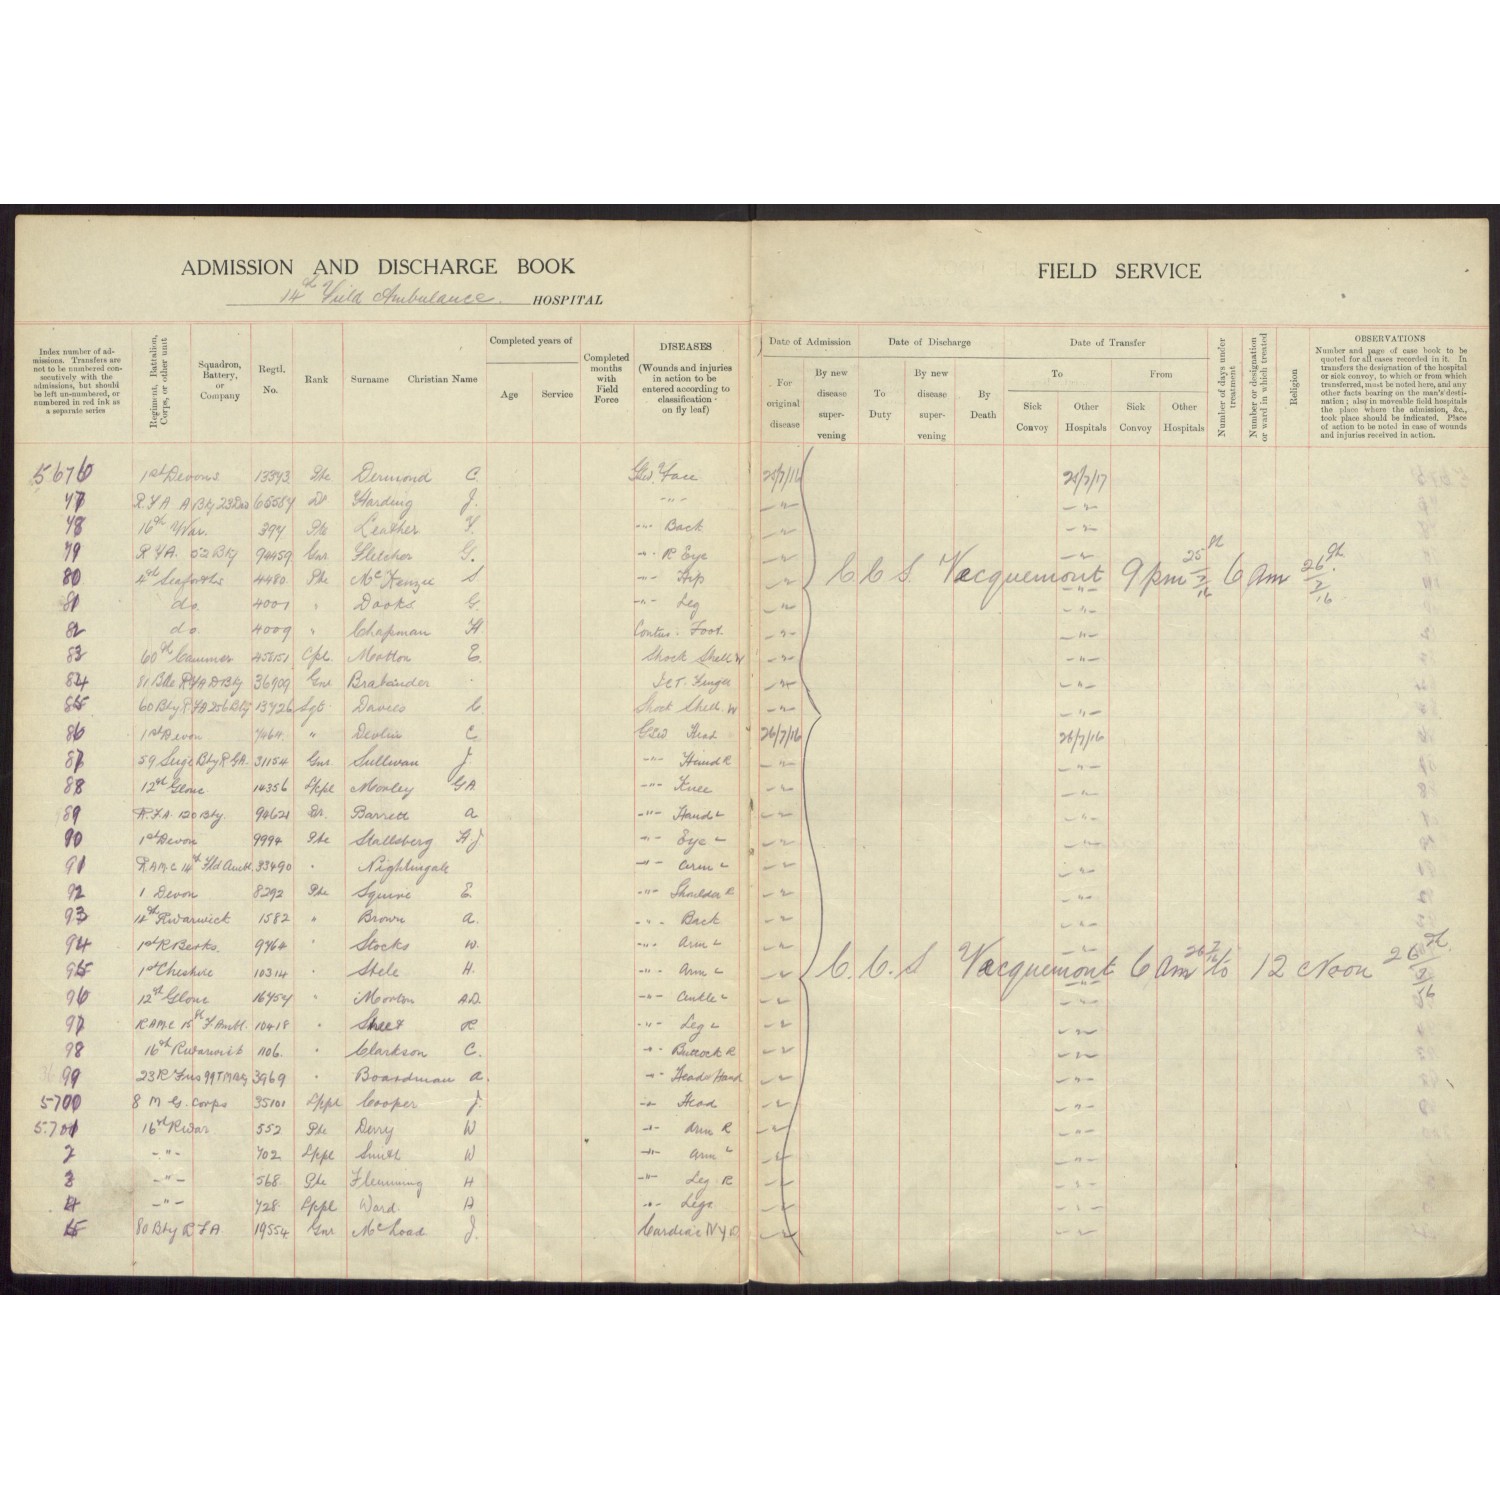 ADMISSION AND DISCHARGE BOOK
14th Field Ambulance HOSPITAL
FIELD SERVICE
Index number of admissions. Transfers are not to be numbered consecutively with the admissions, but should be left un-numbered, or numbered in red ink as a separate series
Regiment, Battalion, Corps, or other unit
Squadron, Battery, or Company
Regtl. No.
Rank
Surname Christian Name
Completed years of
Age
Service
Completed months with Field Force
DISEASES
(Wounds and injuries in action to be entered according to classification on fly leaf)
Date of Admission
For original disease
By new disease supervening
Date of Discharge
To Duty
By new disease supervening
By Death
Date of Transfer
To
From
Sick Convoy
Other Hospitals
Sick Convoy
Other Hospitals
Number of days under treatment
Number or designation or ward in which treated
Religion
OBSERVATIONS
Number and page of case book to be quoted for all cases recorded in it. In transfers the designation of the hospital or sick convoy, to which or from which transferred, must be noted here, and any other facts bearing on the man's destination; also in moveable field hospitals the place where the admission, &c., took place should be indicated. Place of action to be noted in case of wounds and injuries received in action.
5676 1st Devons 13393 Pte Dermond C. GSW Face 25/7/16 25/7/17
77 R.F.A. A Bty 65554 Harding J. -"-
78 16th War. 397 Pte Leather F. -"- Back
79 R.F.A. 52 Bty 94459 Gnr Fletcher G. -"- R Eye
80 4th Seaforths 4480 Pte McKenzie S -"- Hip
C C S. Vacquemont 9 pm 25th/7/16 6 am 26th/7/16
81 do. 4001 " Dooks G. -"- Leg
82 do. 4009 " Chapman H Contus. Foot.
83 60th 458151 Cpl. Motton E. Shock Shell W
84 81 Bde RFA D Bty 36909 Gnr Brabander I.C.T. Finger
85 60 Bty RFA 256 Bty 13726 Sgt Davies C. Shock Shell. W
86 1st Devon 7464 " Devlin C. GSW Head 26/7/16 26/7/16
87 59 Siege Bty R.G.A. 31154 Gnr. Sullivan J. -"- Hand R
88 12th Glouc 14356 L/Cpl Morley GA -"- Knee
89 R.F.A. 120 Bty. 94621 Br. Barrett A -"- Hand L
90 1st Devon 9994 Pte Stallsberg H.J -"- Eye L
91 R.A.M.C 14th Fld Ambl. 33490 " Nightingale -"- Arm L
92 1 Devon 8292 Pte Squire E. -"- Shoulder R
93 14th R Warwick 1582 " Brown A. -"- Back
94 1st R Berks. 9764 " Stocks W. -"- Arm L
95 1st Cheshire 10314 " Stele H. -"- Arm L
C. C. S Vacquemont 6 am 26/7 to 12 Noon 26th
96 12th Glouc 16454 " Morton A.D. -"- Ankle L
97 R.A.M.C 15th F Ambl. 10418 " Street R -"- Leg L
98 16th R Warwick 1106. " Clarkson C. -"- Buttock R
99 23 R Fus 99 T M Bty 3969 " Boardman A. -"- Head & Hand
5700 8 M G. Corps 35101 L/Cpl Cooper J. -"- Head
5701 16th R War 552 Pte Derry W -"- Arm R
2 -"- 702 L/Cpl Smith W -"- Arm L
3 -"- 568 Pte Flemming H -"- Leg R
4 -"- 728 L/Cpl Ward A -"- Legs
5 80 Bty R F A 19554 Gnr McLoad J. Cardiac N Y D